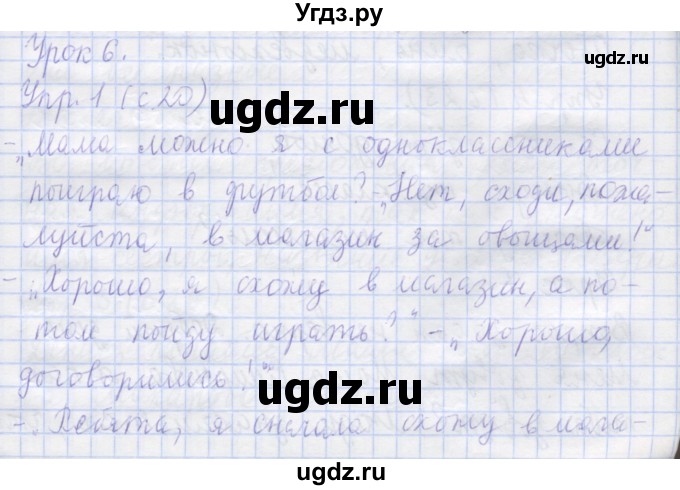 Угдз.ру
Урок 6.
Упр. 1 (с 20)
ugdz.ru
- „Мама можно я с одноклассниками
поиграю в футбол? - „Нет, сходи, пожа-
ugdz.ru
луйста, в магазин за овощами!"
- „Хорошо, я схожу в магазин, а по-
том пойду играть?" - „Хорошо,
договорились!"
ugdz.ru
- „Ребята, я сначала схожу в мага-
ugdz.ru